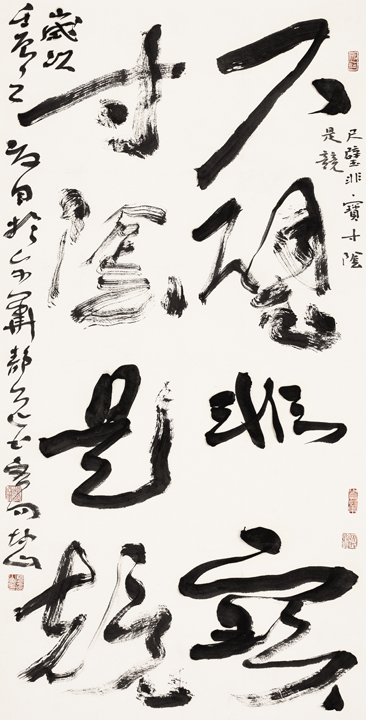 尺璧非寶寸陰
是競
尺璧非寶
寸陰是競
歲次
壬辰之夏日於京華